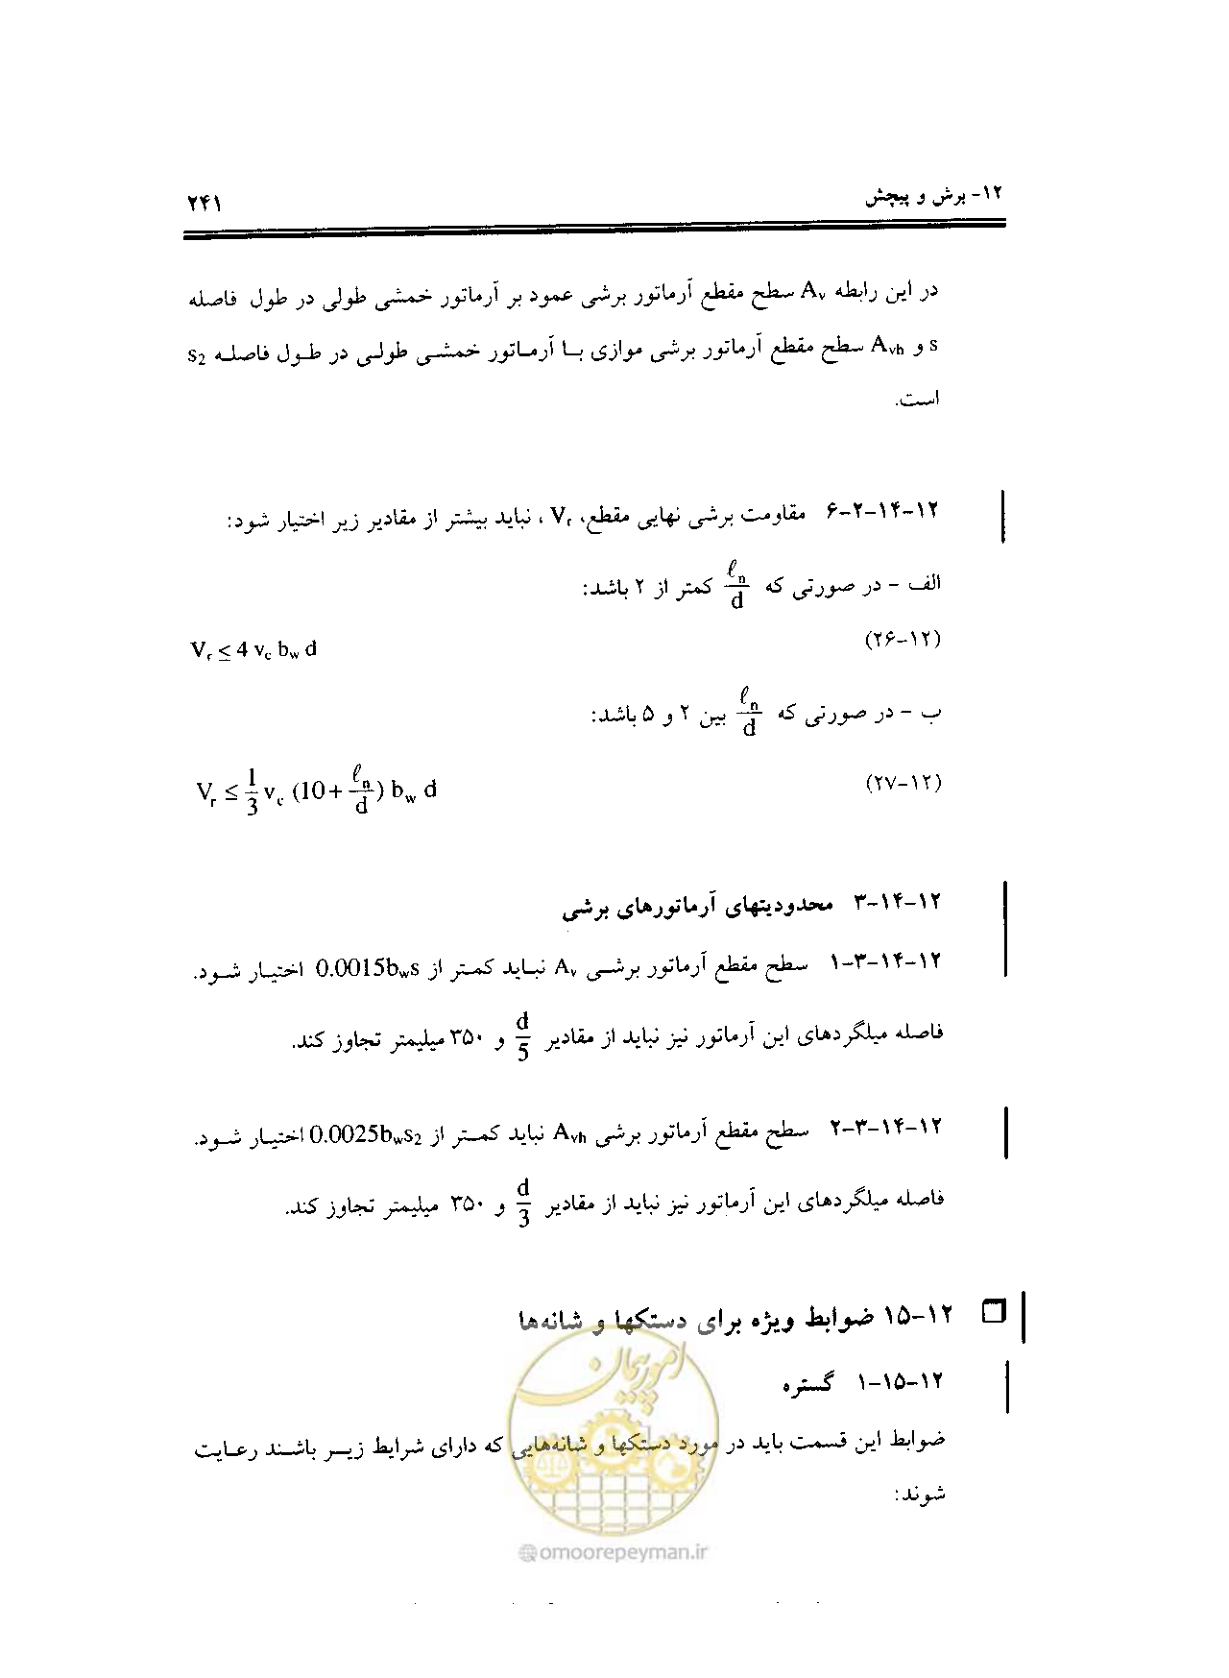 ۱۲- برش و پیچش ۲۴۱
در این رابطه Av سطح مقطع آرماتور برشی عمود بر آرماتور خمشی طولی در طول فاصله
s و Avh سطح مقطع آرماتور برشی موازی با آرماتور خمشی طولی در طول فاصله s2
است.
۱۲-۱۴-۲-۶ مقاومت برشی نهایی مقطع، Vr ، نباید بیشتر از مقادیر زیر اختیار شود:
الف - در صورتی که ℓn/d کمتر از ۲ باشد:
(۱۲-۲۶) Vr ≤ 4 vc bw d
ب - در صورتی که ℓn/d بین ۲ و ۵ باشد:
(۱۲-۲۷) Vr ≤ 1/3 vc (10 + ℓn/d) bw d
۱۲-۱۴-۳ محدودیتهای آرماتورهای برشی
۱۲-۱۴-۳-۱ سطح مقطع آرماتور برشی Av نباید کمتر از 0.0015bws اختیار شود.
فاصله میلگردهای این آرماتور نیز نباید از مقادیر d/5 و ۳۵۰ میلیمتر تجاوز کند.
۱۲-۱۴-۳-۲ سطح مقطع آرماتور برشی Avh نباید کمتر از 0.0025bws2 اختیار شود.
فاصله میلگردهای این آرماتور نیز نباید از مقادیر d/3 و ۳۵۰ میلیمتر تجاوز کند.
۱۲-۱۵ ضوابط ویژه برای دستکها و شانه‌ها
۱۲-۱۵-۱ گستره
ضوابط این قسمت باید در مورد دستکها و شانه‌هایی که دارای شرایط زیر باشند رعایت
شوند:
امور پیمان
omoorepeyman.ir